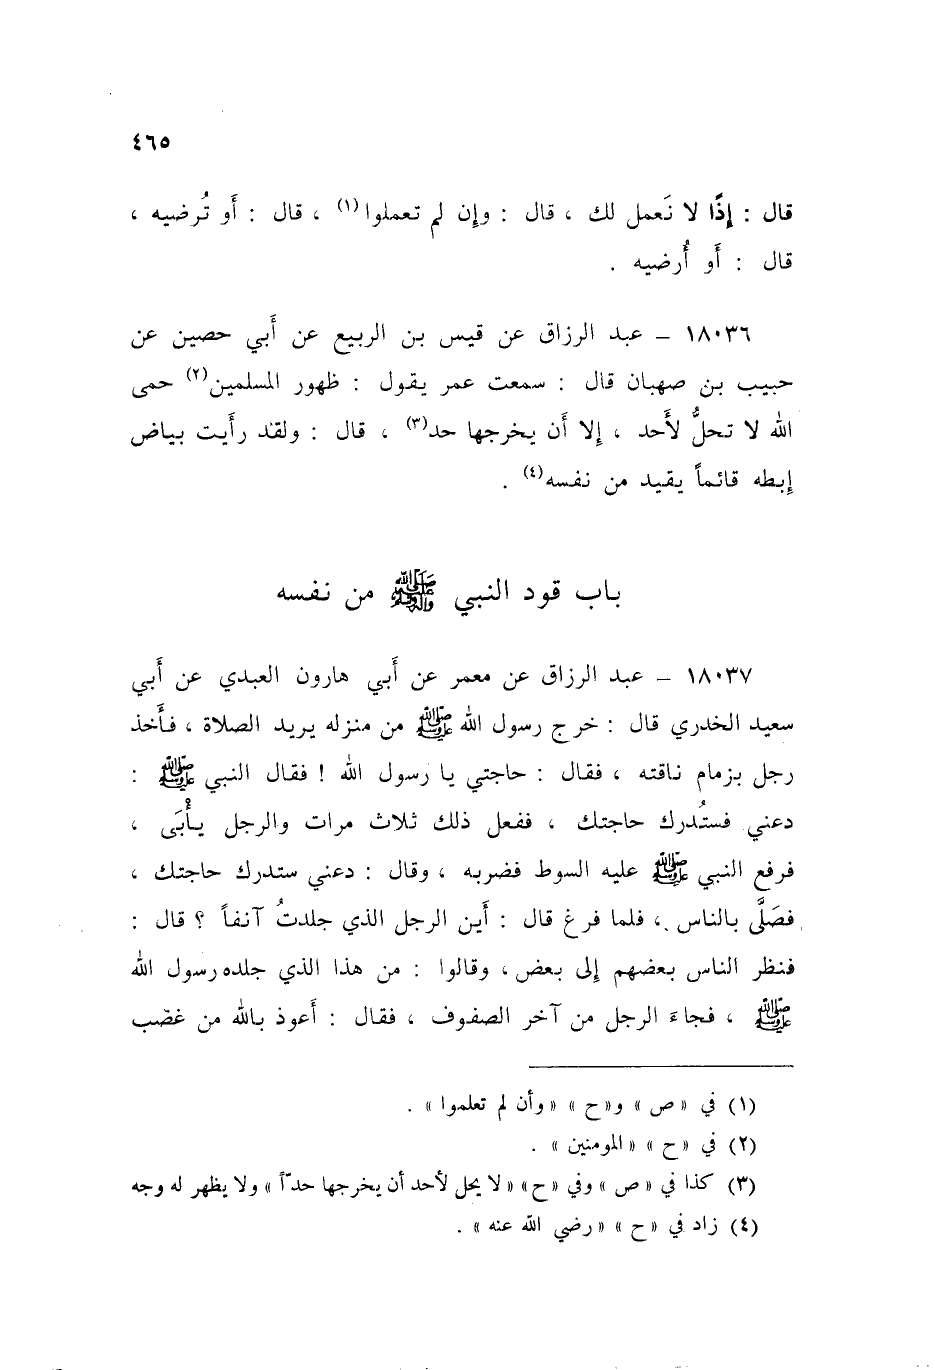 ٤٦٥
قال : إِذًا لا نَعمل لك ، قال : وإِن لم تعملوا (١) ، قال : أَو تُرضيه ،
قال : أَو أُرضيه .
١٨٠٣٦ – عبد الرزاق عن قيس بن الربيع عن أَبي حصين عن
حبيب بن صهبان قال : سمعت عمر يقول : ظهور المسلمين (٢) حمى
الله لا تحلُّ لأَحد ، إِلا أَن يخرجها حد (٣) ، قال : ولقد رأَيت بياض
إِبطه قائماً يقيد من نفسه (٤) .
باب قود النبي ﷺ من نفسه
١٨٠٣٧ – عبد الرزاق عن معمر عن أَبي هارون العبدي عن أَبي
سعيد الخدري قال : خرج رسول الله ﷺ من منزله يريد الصلاة ، فأَخذ
رجل بزمام ناقته ، فقال : حاجتي يا رسول الله ! فقال النبي ﷺ :
دعني فستُدرك حاجتك ، ففعل ذلك ثلاث مرات والرجل يأْبَى ،
فرفع النبي ﷺ عليه السوط فضربه ، وقال : دعني ستدرك حاجتك ،
فصَلَّى بالناس ، فلما فرغ قال : أَين الرجل الذي جلدتُ آنفاً ؟ قال :
فنظر الناس بعضهم إِلى بعض ، وقالوا : من هذا الذي جلده رسول الله
ﷺ ، فجاءَ الرجل من آخر الصفوف ، فقال : أَعوذ بالله من غضب
(١) في « ص » و« ح » « وأن لم تعلموا » .
(٢) في « ح » « المومنين » .
(٣) كذا في « ص » وفي « ح » « لا يحل لأحد أن يخرجها حدّاً » ولا يظهر له وجه
(٤) زاد في « ح » « رضي الله عنه » .